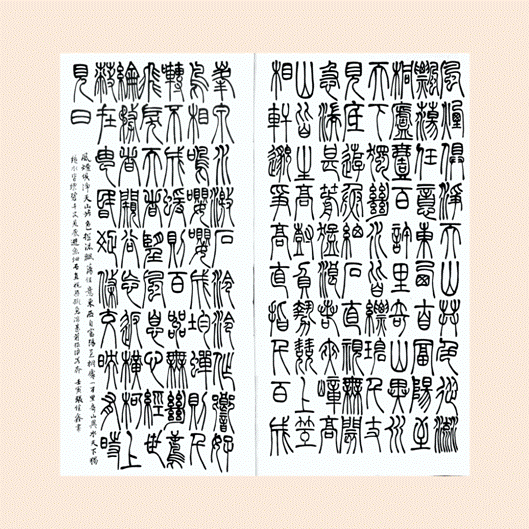 風煙俱淨天山共色從流
飄蕩任意東西自富陽至
桐廬一百許里奇山異水
天下獨絕水皆縹碧千丈
見底游魚細石直視無礙
急湍甚箭猛浪若奔夾嶂高
山皆生寒樹負勢競上互
相軒邈爭高直指千百成
峰泉水激石泠泠作響好
鳥相鳴嚶嚶成韻蟬則千
轉不窮猿則百叫無絕鳶
飛戾天者望峰息心經世
綸務者窺谷忘返橫柯上
蔽在晝猶昏疏條交映有時
見日
風煙俱淨天山共色從流飄蕩任意東西自富陽至桐廬一百里奇山異水天下獨
絕水皆縹碧千丈見底游魚細石直視無礙急湍甚箭猛浪若奔 壬寅 書